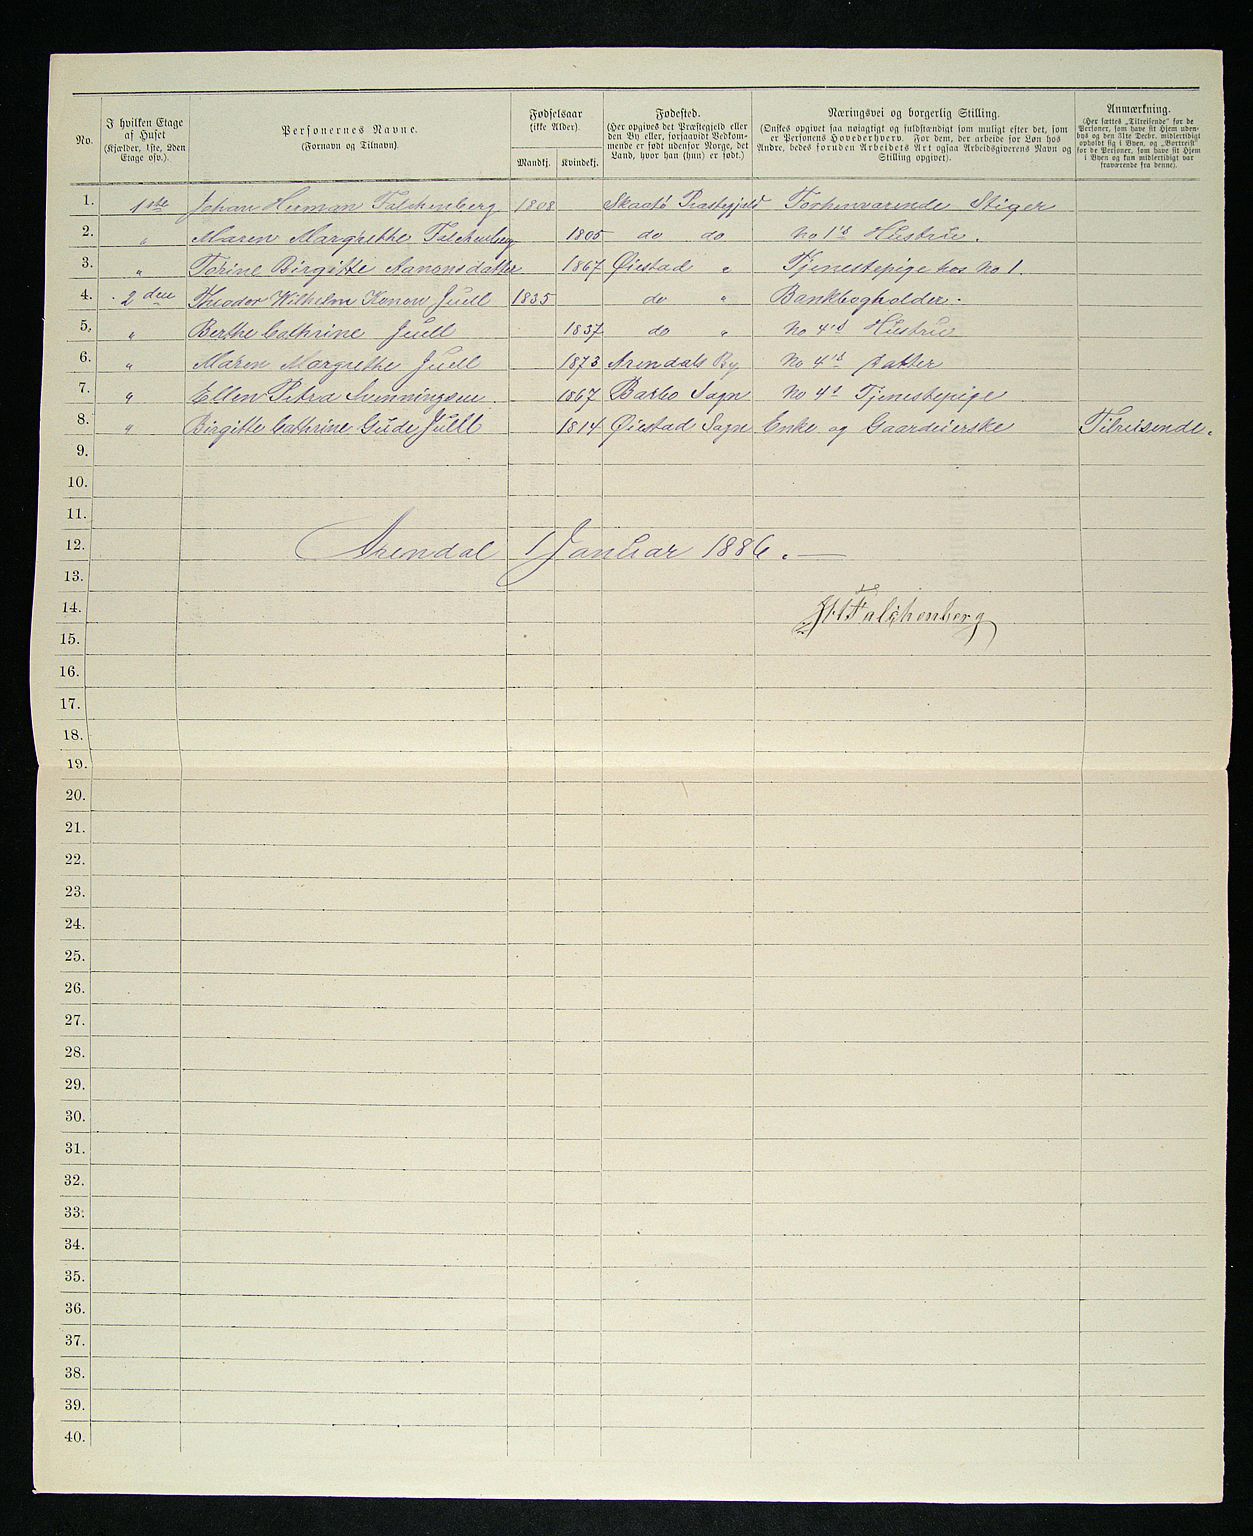 No.
I hvilken Etage
af Huset
(Kjælder, 1ste, 2den
Etage osv.).
Personernes Navne.
(Fornavn og Tilnavn).
Fødselsaar
(ikke Alder).
Mandkj.
Kvindekj.
Fødested.
(Her opgives det Præstegjeld eller
den By eller, forsaavidt Vedkom-
mende er født udenfor Norge, det
Land, hvor han (hun) er født.)
Næringsvei og borgerlig Stilling.
(Ønskes opgivet saa nøiagtigt og fuldstændigt som muligt efter det, som
er Personens Hovederhverv. For dem, der arbeide for Løn hos
Andre, bedes foruden Arbeidets Art ogsaa Arbeidsgiverens Navn og
Stilling opgivet).
Anmærkning.
(Her sættes „Tilreisende” for de
Personer, som have sit Hjem uden-
bys og den 31te Decbr. midlertidigt
opholdt sig i Byen, og „Bortreist”
for de Personer, som have sit Hjem
i Byen og kun midlertidigt var
fraværende fra denne).
1. 1ste Johan Herman Falchenberg 1808 Skaatø Præstegjeld Forhenværende Stiger
2. " Maren Margrethe Falchenberg 1805 do do No 1's Hustru.
3. " Torine Birgitte Aanonsdatter 1867 Øiestad " Tjenestepige hos No 1.
4. 2den Theodor Wilhelm Konow Juell 1835 do " Bankbogholder.
5. " Berthe Cathrine Juell 1837 do " No 4's Hustru
6. " Maren Margrethe Juell 1873 Arendals By No 4's Datter
7. " Ellen Petra Svenningsen. 1867 Barbo Sogn No 4s Tjenestepige
8. " Birgitte Cathrine Gude Juell 1814 Øiestad Sogn Enke og Gaardeierske Tilreisende.
9.
10.
11.
12. Arendal 1 Januar 1886.
13.
14. JHFalchenberg
15.
16.
17.
18.
19.
20.
21.
22.
23.
24.
25.
26.
27.
28.
29.
30.
31.
32.
33.
34.
35.
36.
37.
38.
39.
40.